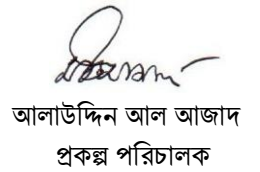 আলাউদ্দিন আল আজাদ
প্রকল্প পরিচালক